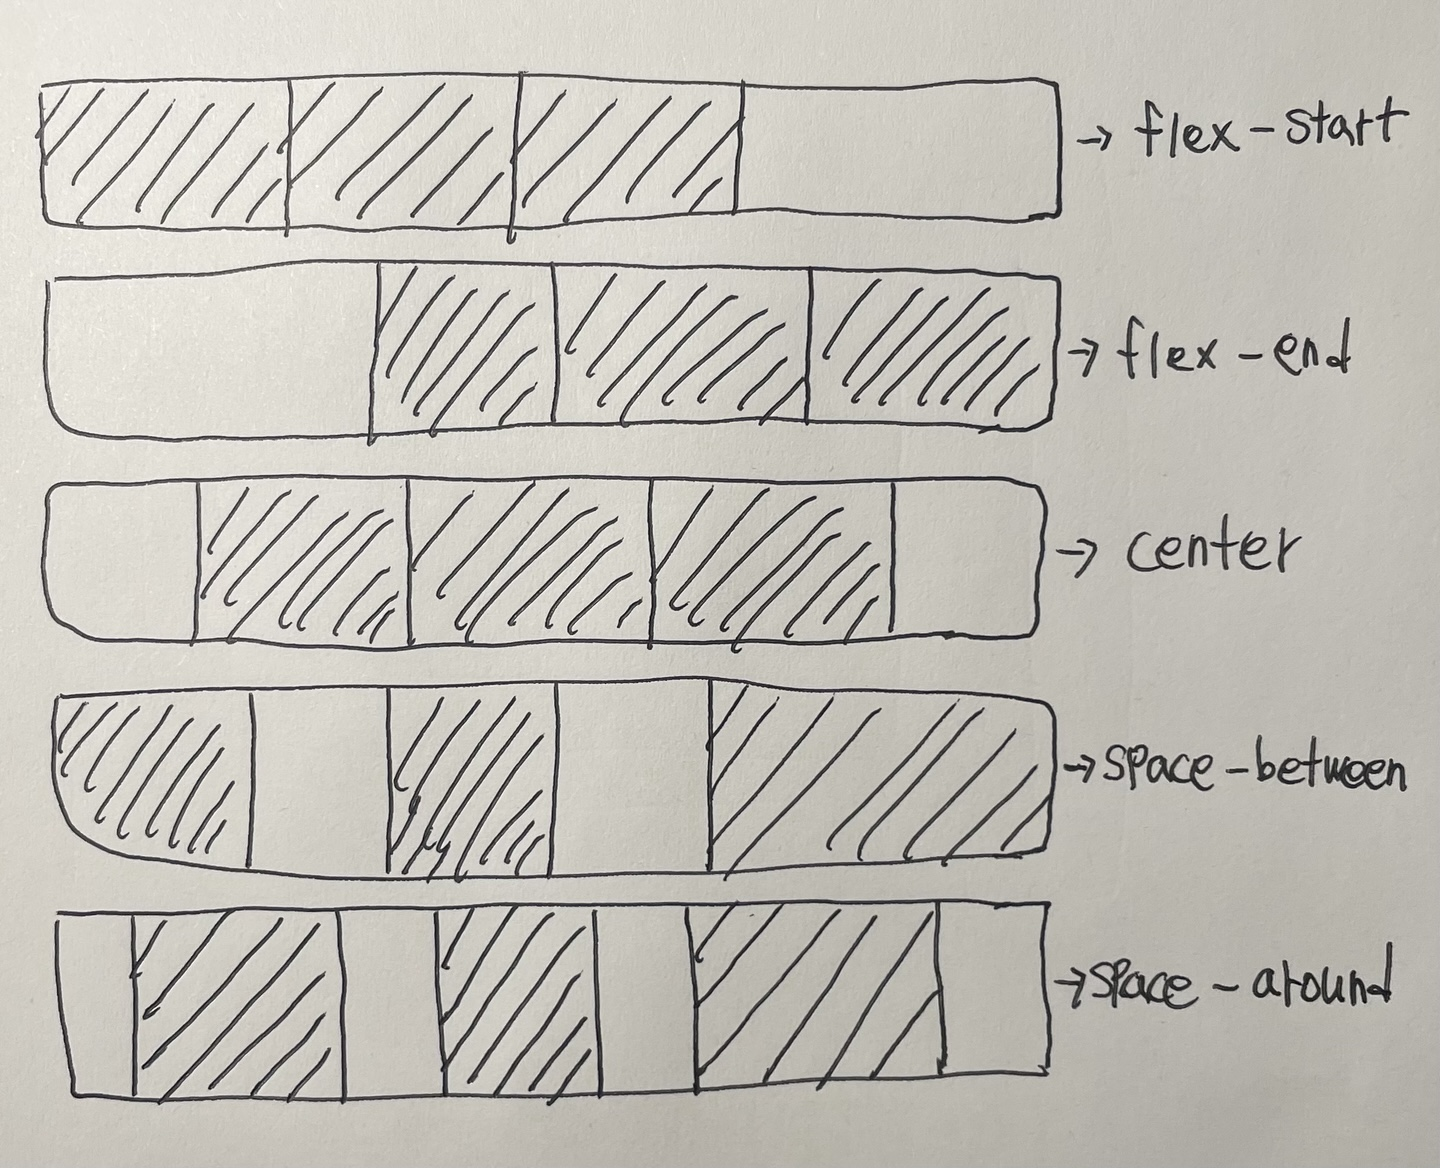 → flex-start
→ flex-end
→ center
→ space-between
→ space-around